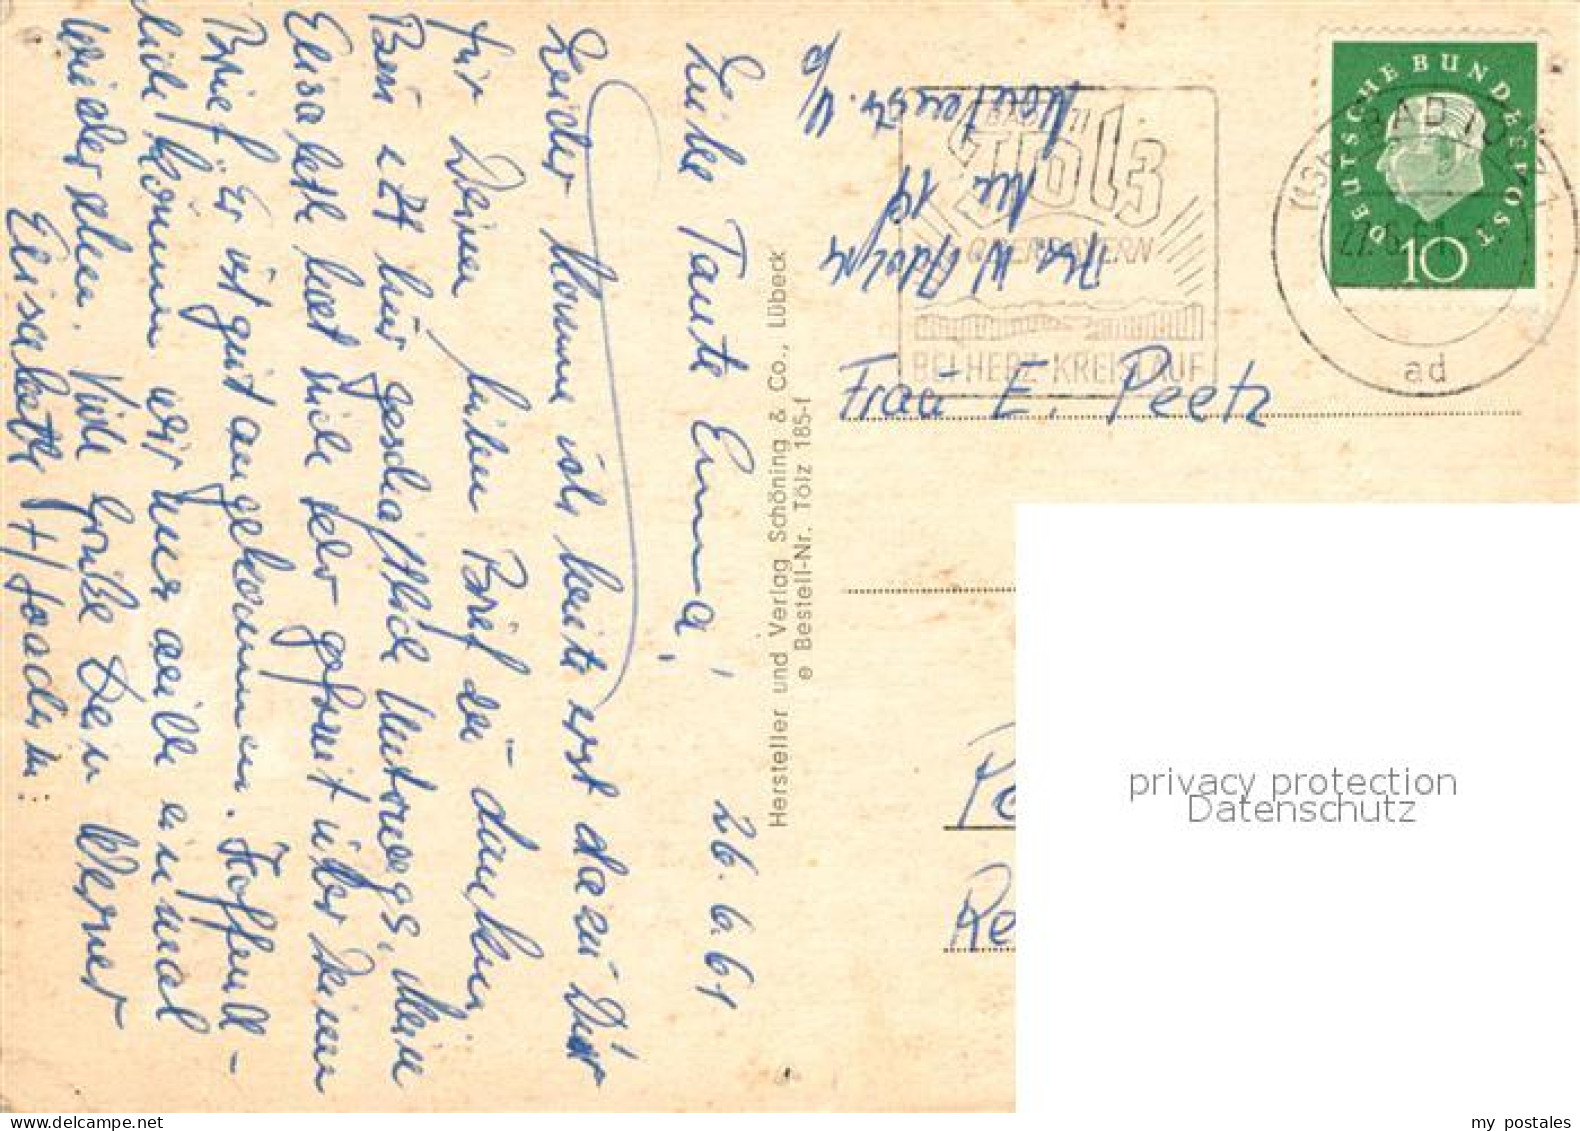 Liebe Tante Emma!
26.6.61
Leider komme ich heute erst dazu Dir
für Deinen lieben Brief zu danken,
Bin z Zt hier geschäftlich Unterwegs, Meine
Elisabeth hat sich sehr gefreut über Deinen
Brief. Er ist gut angekommen. Hoffent-
lich können wir uns alle einmal
Wiedersehen. Viele Grüße Dein Werner
Elisabeth + Joachim.
Hersteller und Verlag Schöning & Co., Lübeck
e Bestell-Nr. Tölz 185-f
Nr 14
BAD
Tölz
OBERBAYERN
BEI HERZ-KREISLAUF
DEUTSCHE BUNDESPOST
10
BAD TÖLZ
ad
Frau E. Peetz
privacy protection
Datenschutz
my postales